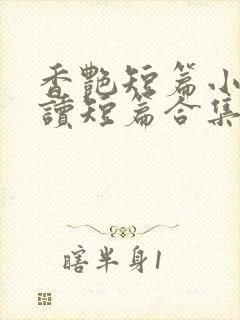 香艷短篇小
讀短篇合集
瞎半身1